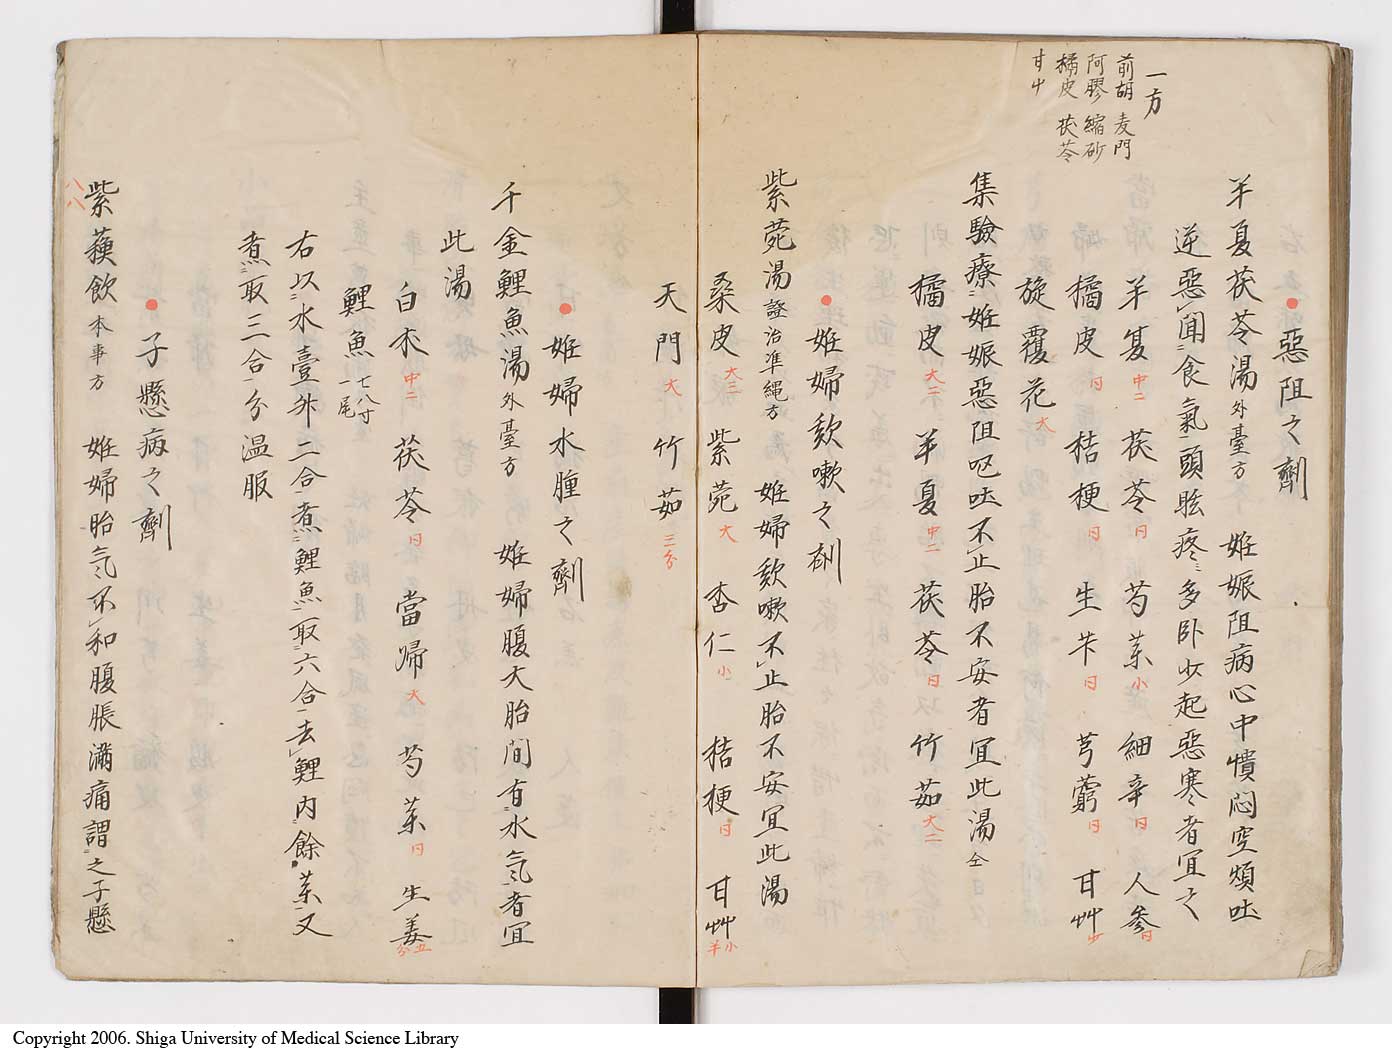 一方
前胡 麦門
阿膠 縮砂
橘皮 茯苓
甘屮
惡阻之劑
半夏茯苓湯 外臺方 姙娠阻病心中憒悶空煩吐
逆惡聞食氣頭眩疼多卧少起惡寒者宜之
半夏 中二 茯苓 同 芍薬 小 細辛 同 人參 同
橘皮 同 桔梗 同 生芐 同 芎藭 同 甘艸 少
旋覆花 大
集驗療姙娠惡阻呕吐不止胎不安者宜此湯 仝
橘皮 大二 半夏 中二 茯苓 同 竹茹 大二
姙婦欬嗽之劑
紫菀湯 證治準縄方 姙婦欬嗽不止胎不安宜此湯
桑皮 大三 紫菀 大 杏仁 小 桔梗 同 甘艸 小半
天門 大 竹茹 三分
姙婦水腫之劑
千金鯉魚湯 外臺方 姙婦腹大胎間有水気者宜
此湯
白朮 中二 茯苓 同 當帰 大 芍薬 同 生姜 五分
鯉魚 七八寸一尾
右以水壹舛二合煮鯉魚取六合去鯉内餘薬又
煮取三合分温服
子懸病之劑
紫蘓飲 本事方 姙婦胎気不和腹脹満痛謂之子懸
八八
Copyright 2006. Shiga University of Medical Science Library